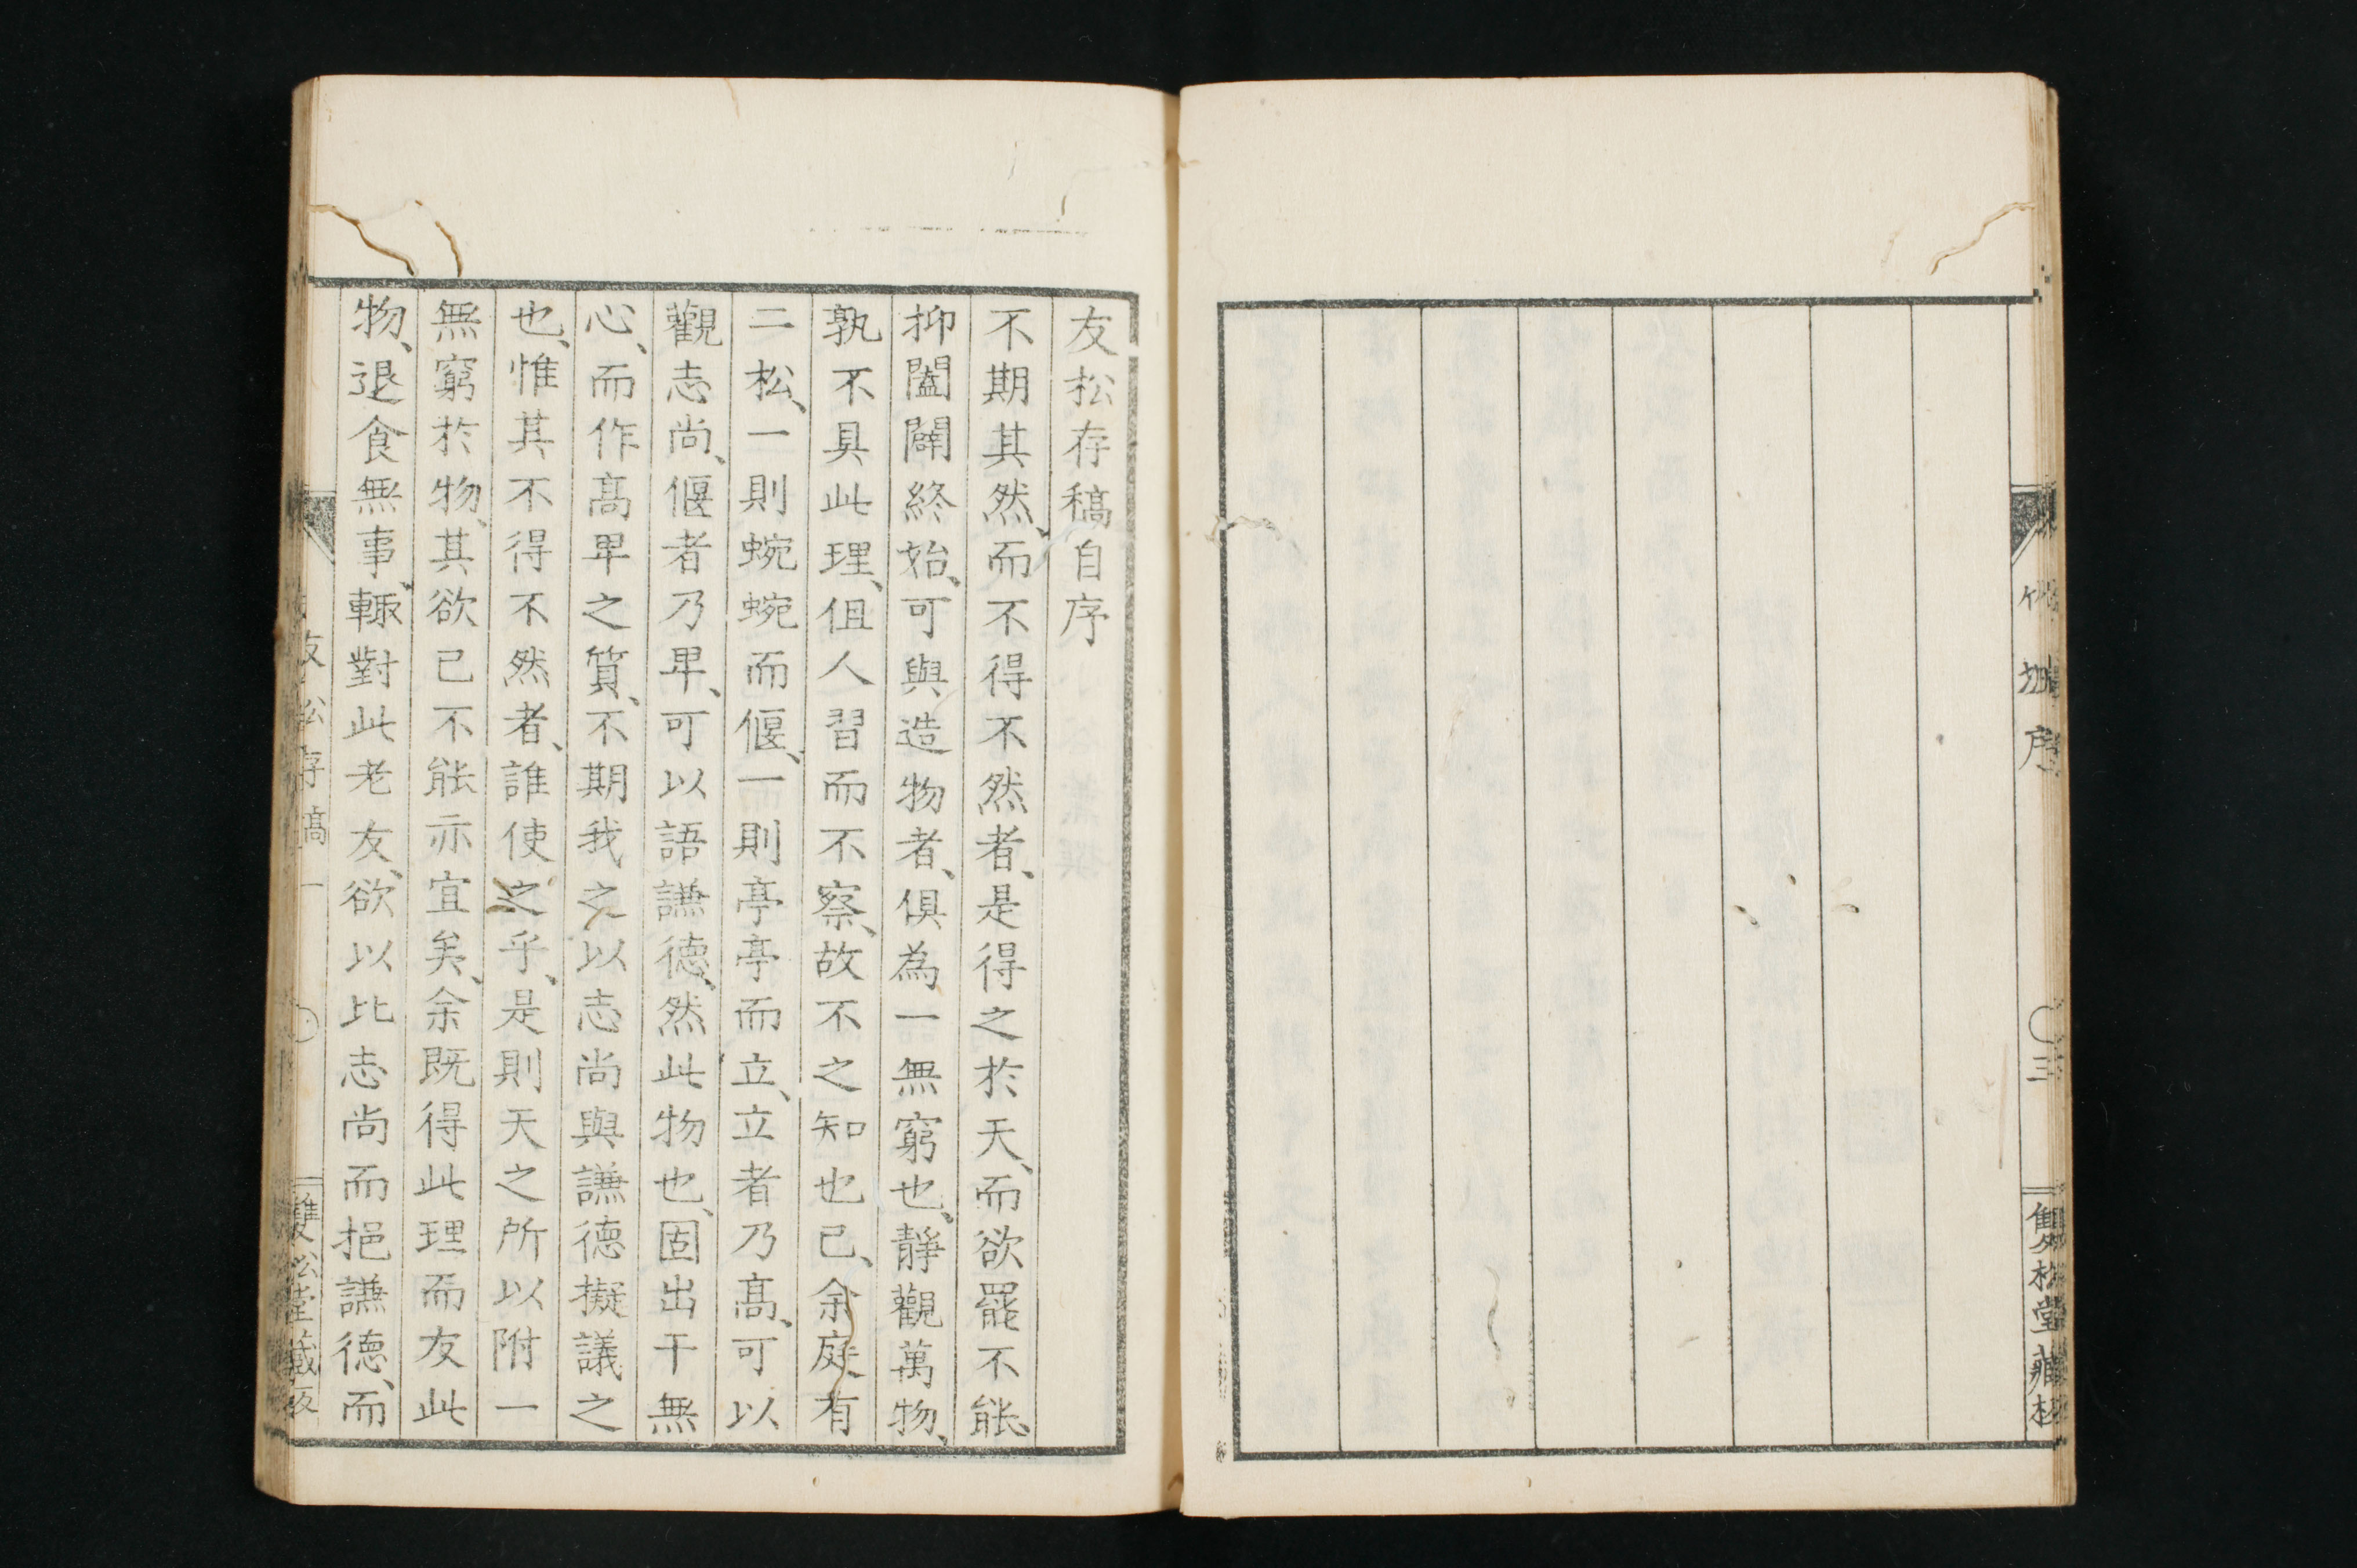 序
三
雙松堂藏板
友松存稿自序
不期其然、而不得不然者、是得之於天、而欲罷不能、
抑闔闢終始、可與造物者、俱為一無窮也、靜觀萬物、
孰不具此理、但人習而不察、故不之知也已、余庭有
二松、一則蜿蜿而偃、一則亭亭而立、立者乃高、可以
觀志尚、偃者乃卑、可以語謙德、然此物也、固出于無
心、而作高卑之質、不期我之以志尚與謙德擬議之
也、惟其不得不然者、誰使之乎、是則天之所以附一
無窮於物、其欲已不能亦宜矣、余既得此理而友此
物、退食無事、輙對此老友、欲以比志尚而挹謙德、而
友松存稿 一
雙松堂藏板